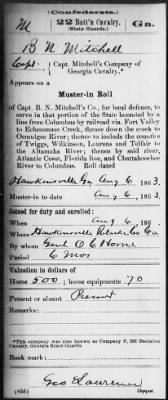 (Confederate.)
M 22 Batt'n Cavalry. Ga.
(State Guards.)
B. N. Mitchell
Capt., Capt. Mitchell's Company of
Georgia Cavalry.*
Appears on a
Muster-in Roll
of Capt. B. N. Mitchell's Co., for local defence, to
serve in that portion of the State bounded by a
line from Columbus by railroad via. Fort Valley
to Echeconnee Creek, thence down the creek to
Ocmulgee River; thence to include the counties
of Twiggs, Wilkinson, Laurens and Telfair to
the Altamaha River; thence by said river,
Atlantic Coast, Florida line, and Chattahoochee
River to Columbus. Roll dated
Hawkinsville Ga, Aug 6, 1863.
Muster-in to date Aug 6, 1863.
Joined for duty and enrolled:
When Aug 6, 1863.
Where Hawkinsville Pulaski Co Ga
By whom Genl O C Horne
Period 6 Mos
Valuation in dollars of
Horse 500; horse equipments 70
Present or absent Present
Remarks:
*This company was also known as Company F, 22d Battalion
Cavalry, Georgia State Guards.
Book mark:
Geo Lawrence
(655) Copyist.